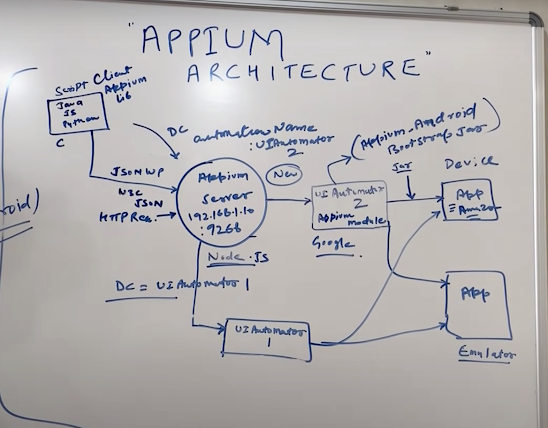 "APPIUM
ARCHITECTURE"
Script Client
Appium
Lib
Java
JS
Python
C
DC
automationName
:UIAutomator
2
(Appium-Android
Bootstrap Jar)
JSONWP
W3C
JSON
HTTP Req.
Appium
Server
192.168.1.10
New
UIAutomator
2
Appium
module
Google
Jar
Device
App
Node.JS
DC = UIAutomator 1
UIAutomator
1
App
Emulator
roid)